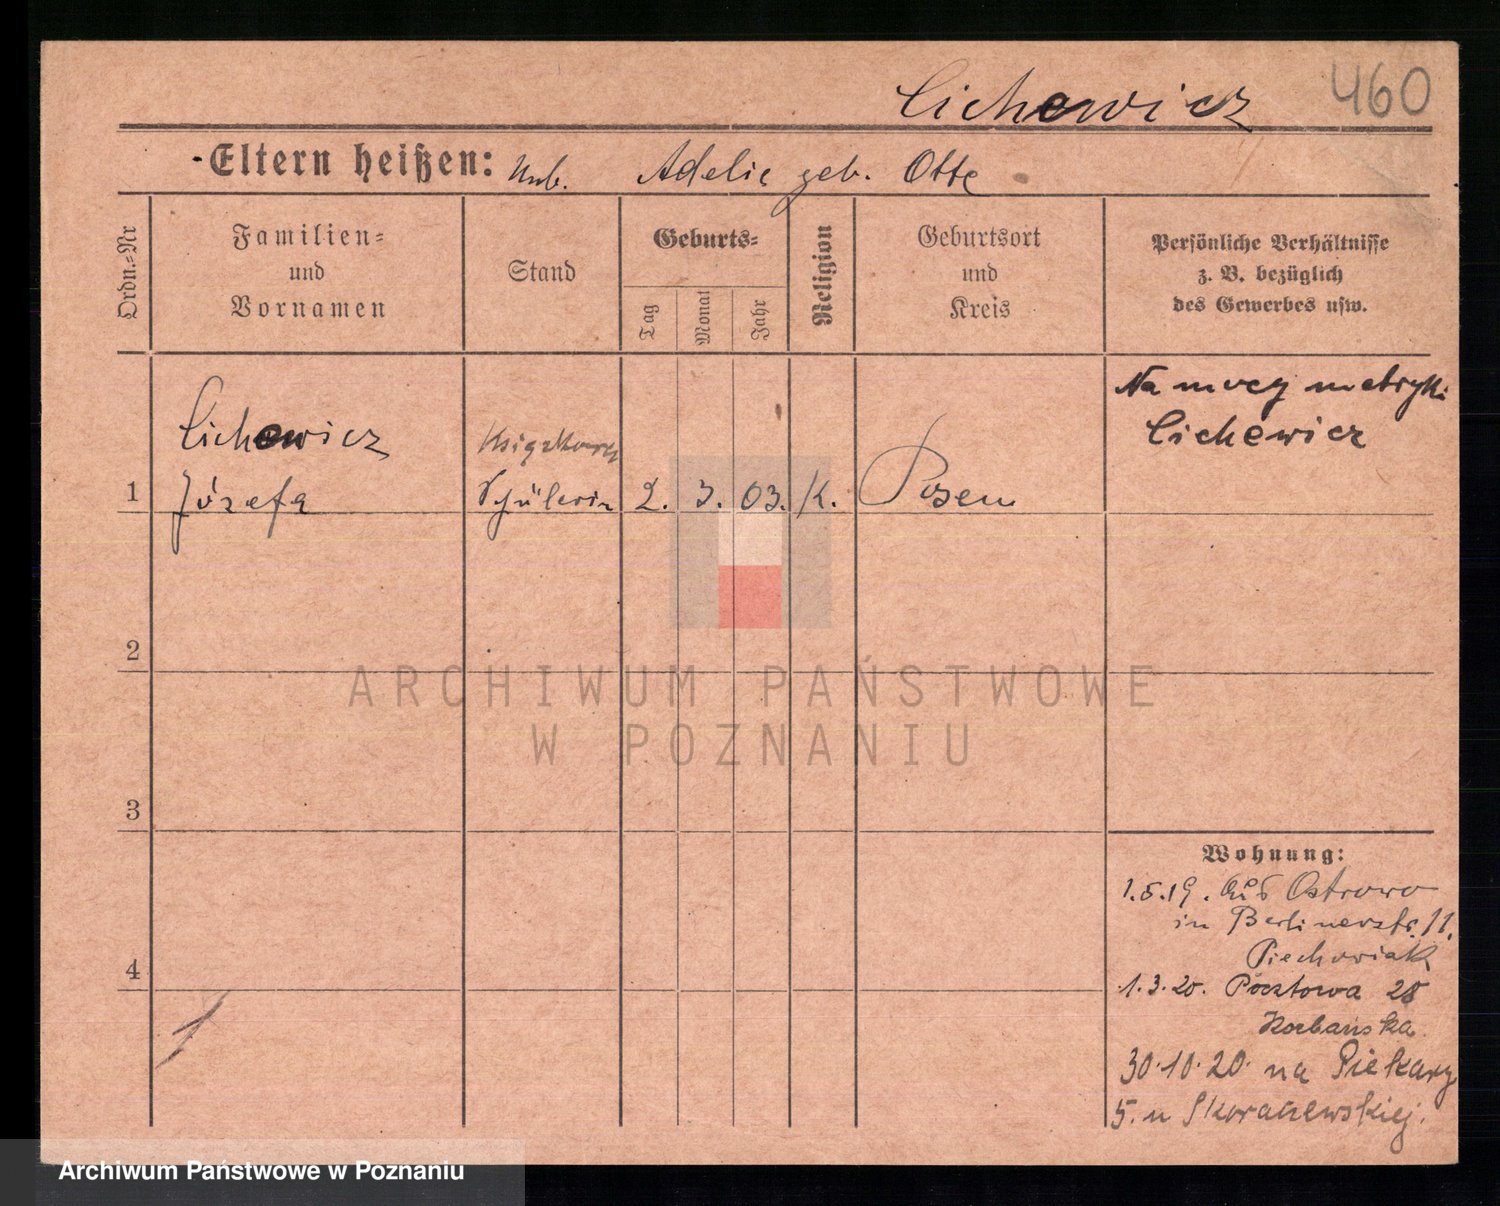 Cichewicz 460
Eltern heißen: Unb. Adelie geb. Otte
Ordn.-Nr
Familien-
und
Vornamen
Stand
Geburts-
Tag
Monat
Jahr
Religion
Geburtsort
und
Kreis
Persönliche Verhältnisse
z. B. bezüglich
des Gewerbes usw.
Na mocy metryki
Cichewicz
Cichewicz Książkowy
1 Józefa Schülerin 2. 3. 03. K. Posen
2
3
4
ARCHIWUM PAŃSTWOWE
W POZNANIU
Wohnung:
1.5.19. aus Ostrowo
in Berlinerstr. 11.
Piechowiak
1.3.20. Pocztowa 28
30.10.20. na Piekary
5. u Skoraczewskiej.
Archiwum Państwowe w Poznaniu